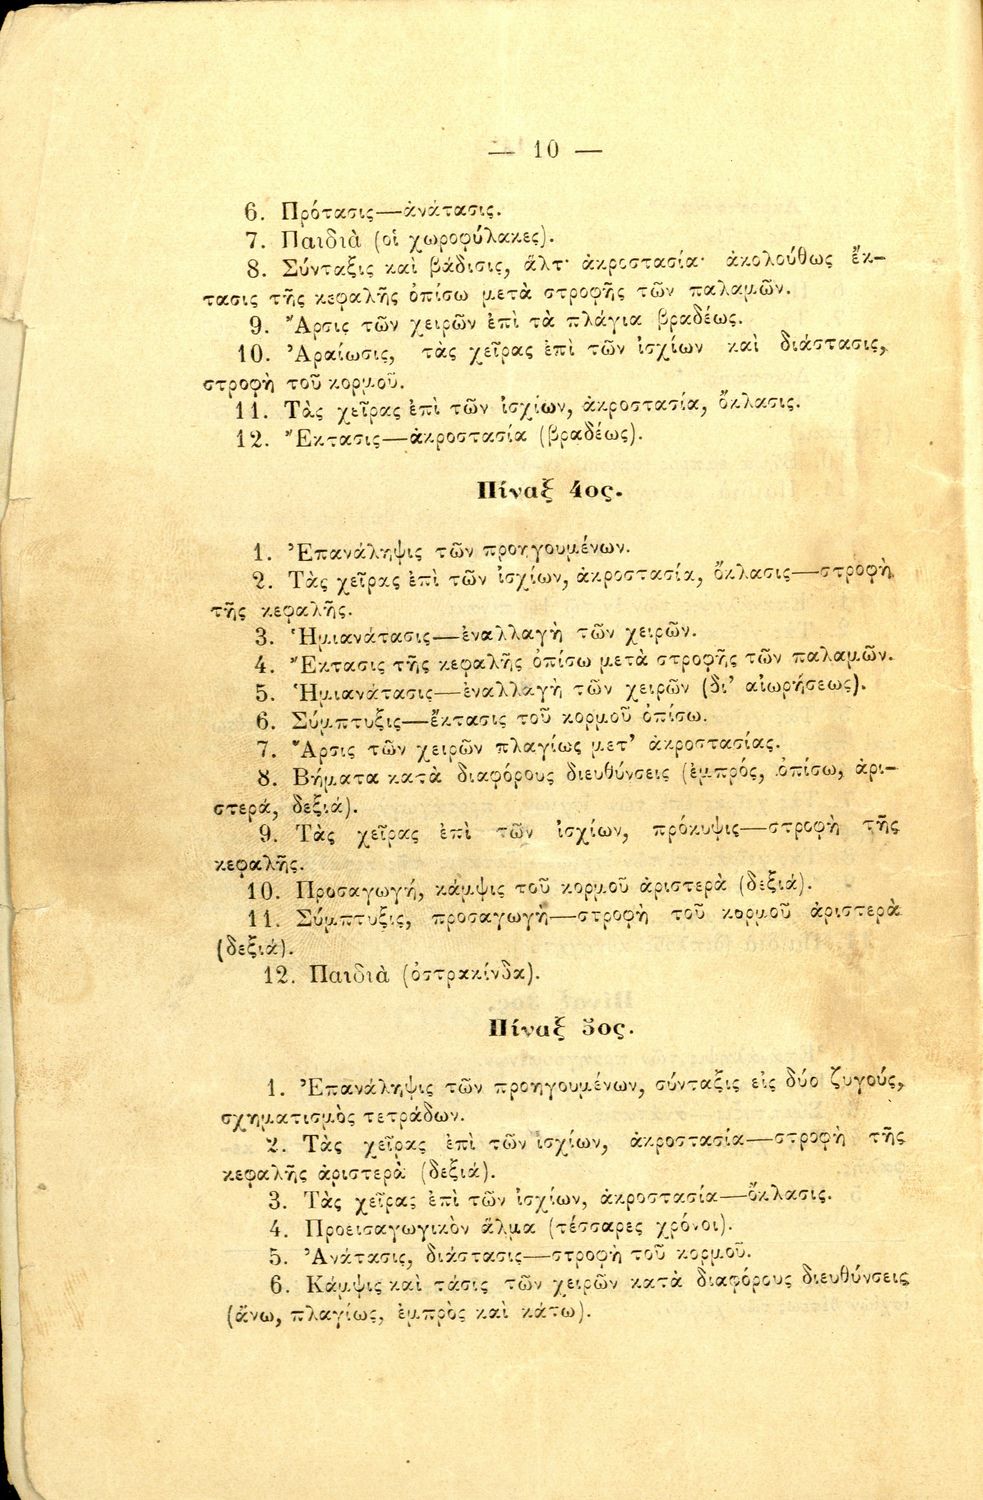 — 10 —
6. Πρότασις—ἀνάτασις.
7. Παιδιὰ (οἱ χωροφύλακες).
8. Σύνταξις καὶ βάδισις, ἅλτ· ἀκροστασία· ἀκολούθως ἔκ-
τασις τῆς κεφαλῆς ὀπίσω μετὰ στροφῆς τῶν παλαμῶν.
9. Ἄρσις τῶν χειρῶν ἐπὶ τὰ πλάγια βραδέως.
10. Ἀραίωσις, τὰς χεῖρας ἐπὶ τῶν ἰσχίων καὶ διάστασις,
στροφὴ τοῦ κορμοῦ.
11. Τὰς χεῖρας ἐπὶ τῶν ἰσχίων, ἀκροστασία, ὄκλασις.
12. Ἔκτασις—ἀκροστασία (βραδέως).
Πίναξ 4ος.
1. Ἐπανάληψις τῶν προηγουμένων.
2. Τὰς χεῖρας ἐπὶ τῶν ἰσχίων, ἀκροστασία, ὄκλασις—στροφὴ
τῆς κεφαλῆς.
3. Ἡμιανάτασις—ἐναλλαγὴ τῶν χειρῶν.
4. Ἔκτασις τῆς κεφαλῆς ὀπίσω μετὰ στροφῆς τῶν παλαμῶν.
5. Ἡμιανάτασις—ἐναλλαγὴ τῶν χειρῶν (δι' αἰωρήσεως).
6. Σύμπτυξις—ἔκτασις τοῦ κορμοῦ ὀπίσω.
7. Ἄρσις τῶν χειρῶν πλαγίως μετ' ἀκροστασίας.
8. Βήματα κατὰ διαφόρους διευθύνσεις (ἐμπρός, ὀπίσω, ἀρι-
στερά, δεξιά).
9. Τὰς χεῖρας ἐπὶ τῶν ἰσχίων, πρόκυψις—στροφὴ τῆς
κεφαλῆς.
10. Προσαγωγή, κάμψις τοῦ κορμοῦ ἀριστερὰ (δεξιά).
11. Σύμπτυξις, προσαγωγὴ—στροφὴ τοῦ κορμοῦ ἀριστερὰ
(δεξιά).
12. Παιδιὰ (ὀστρακίνδα).
Πίναξ 5ος.
1. Ἐπανάληψις τῶν προηγουμένων, σύνταξις εἰς δύο ζυγούς,
σχηματισμὸς τετράδων.
2. Τὰς χεῖρας ἐπὶ τῶν ἰσχίων, ἀκροστασία—στροφὴ τῆς
κεφαλῆς ἀριστερὰ (δεξιά).
3. Τὰς χεῖρας ἐπὶ τῶν ἰσχίων, ἀκροστασία—ὄκλασις.
4. Προεισαγωγικὸν ἅλμα (τέσσαρες χρόνοι).
5. Ἀνάτασις, διάστασις—στροφὴ τοῦ κορμοῦ.
6. Κάμψις καὶ τάσις τῶν χειρῶν κατὰ διαφόρους διευθύνσεις
(ἄνω, πλαγίως, ἐμπρὸς καὶ κάτω).